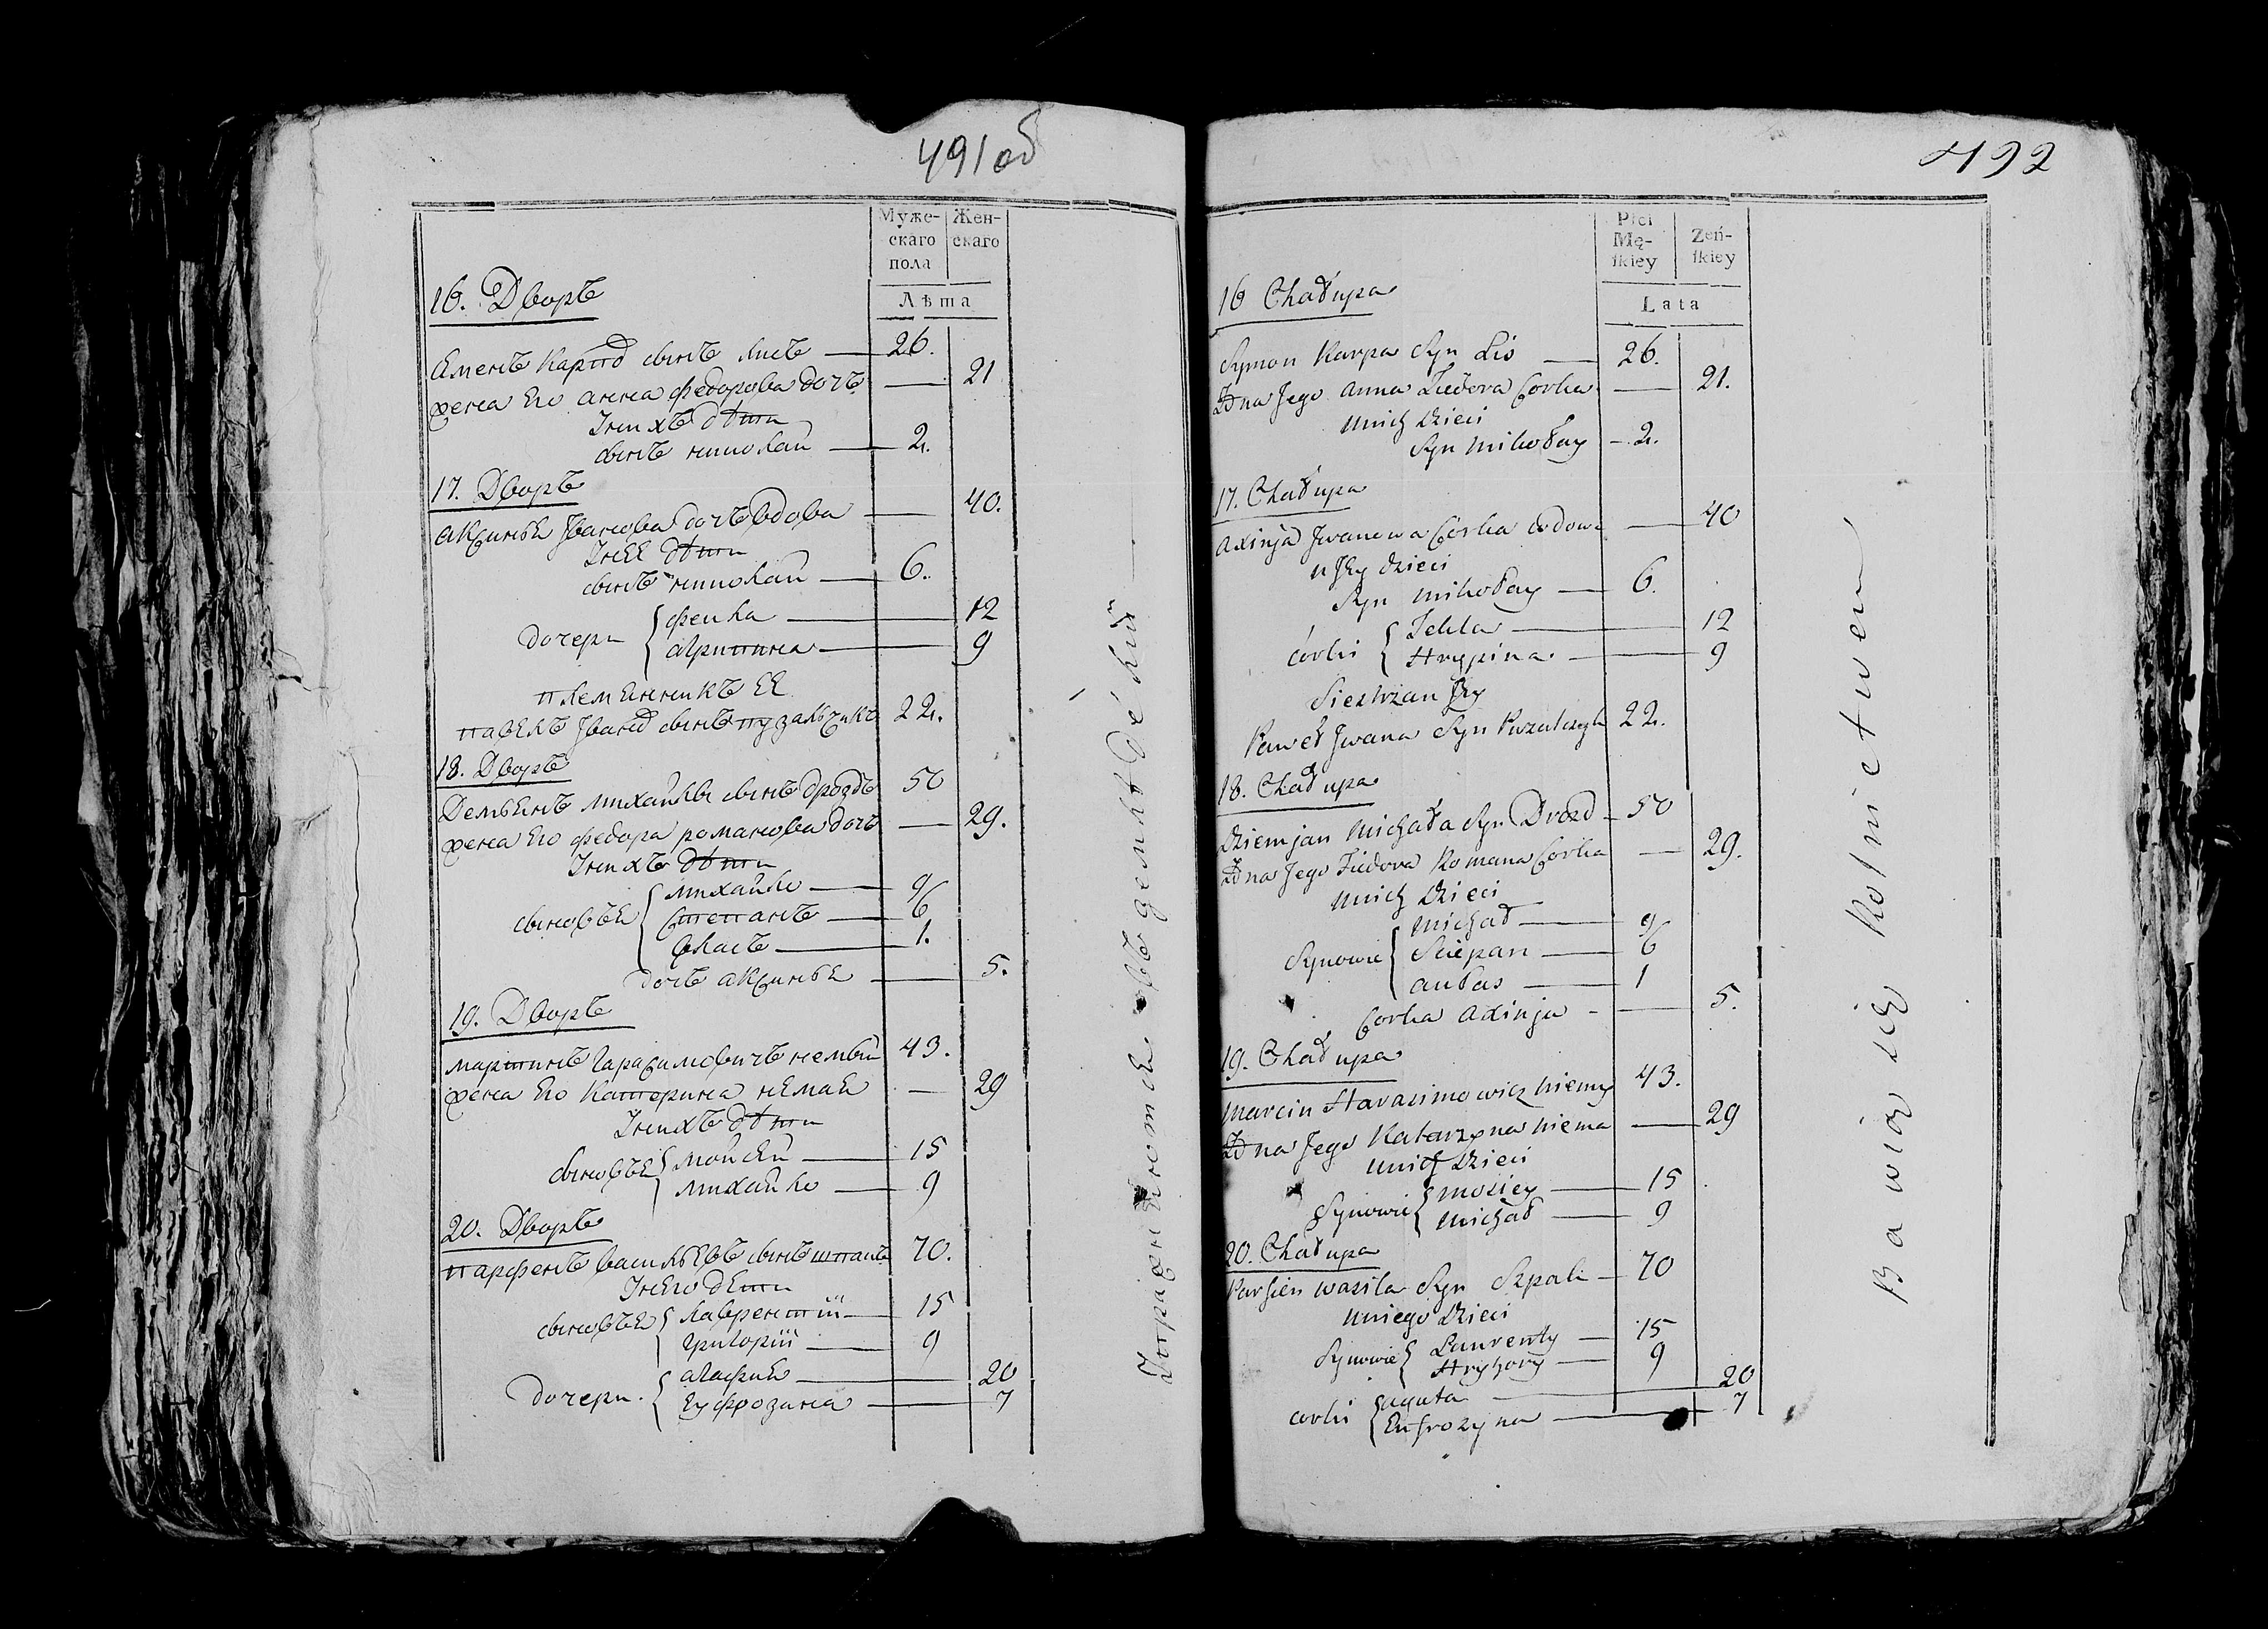 491об
Муже-
скаго
пола
Жен-
скаго
Лѣта
16. Дворъ
Сменъ Карпов сынъ Лисъ 26.
жена его анна федорова дочъ 21
У них дѣти
сынъ николай 2.
17. Дворъ
аксинья Іванова дочъ вдова 40.
У нее дѣти
сынъ николай 6.
дочери
фенка 12
агрипина 9
племянникъ ее
павелъ Іванов сынъ пузальчикъ 22.
18. Дворъ
Демьянъ михайлы сынъ дроздъ 50
жена его федора романова дочъ 29.
У нихъ дѣти
сыновья
михайло 9
степанъ 6
власъ 1.
дочъ аксинья 5.
19. Дворъ
мартинъ Гарасимовичъ немый 43.
жена его катерина немая 29
У нихъ дѣти
сыновья
мойсей 15
михайло 9
20. Дворъ
парфенъ васильевъ сынъ шпакъ 70.
У него дети
сыновья
лаврентий 15
григорий 9
дочери.
агафия 20
Еуфрозина 7
Упражняются въ земледелии
492
Płci
Mę-
ſkiey
Zeń-
ſkiey
Lata
16 Chałupa
Symon Karpa Syn Lis 26.
Żona Jego Anna Fiedora Corka 21.
U nich Dzieci
Syn Mikołay 2.
17. Chałupa
Axinja Jwanowa Corka wdowa 40
U Jey dzieci
Syn Mikołay 6.
Corki
Tekla 12
Hrypina 9
Siestrzan Jey
Paweł Jwana Syn Puzalczyk 22.
18. Chałupa
Dziemjan Michała Syn Drozd 50
Żona Jego Fiedora Romana Corka 29.
U nich Dzieci
Synowie
Michał 9
Sciepan 6
Aułas 1
Corka Axinja 5.
19. Chałupa
Marcin Harasimowicz Niemy 43.
Żona Jego Katarzyna Niema 29
U nich Dzieci
Synowie
Mosiey 15
Michał 9
20. Chałupa
Parfien Wasila Syn Szpak 70
U niego Dzieci
Synowie
Laurenty 15
Hryhory 9
Corki
Agata 20
Eufrozyna 7
Bawią się Rolnictwem